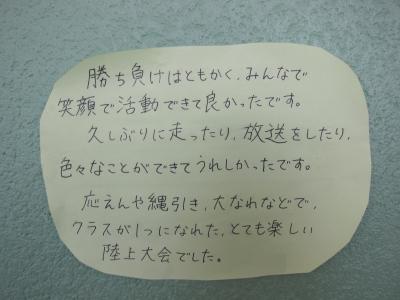 勝ち負けはともかく、みんなで
笑顔で活動できて良かったです。
久しぶりに走ったり、放送をしたり、
色々なことができてうれしかったです。
応えんや縄引き、大なれなどで、
クラスが1つになれた、とても楽しい
陸上大会でした。